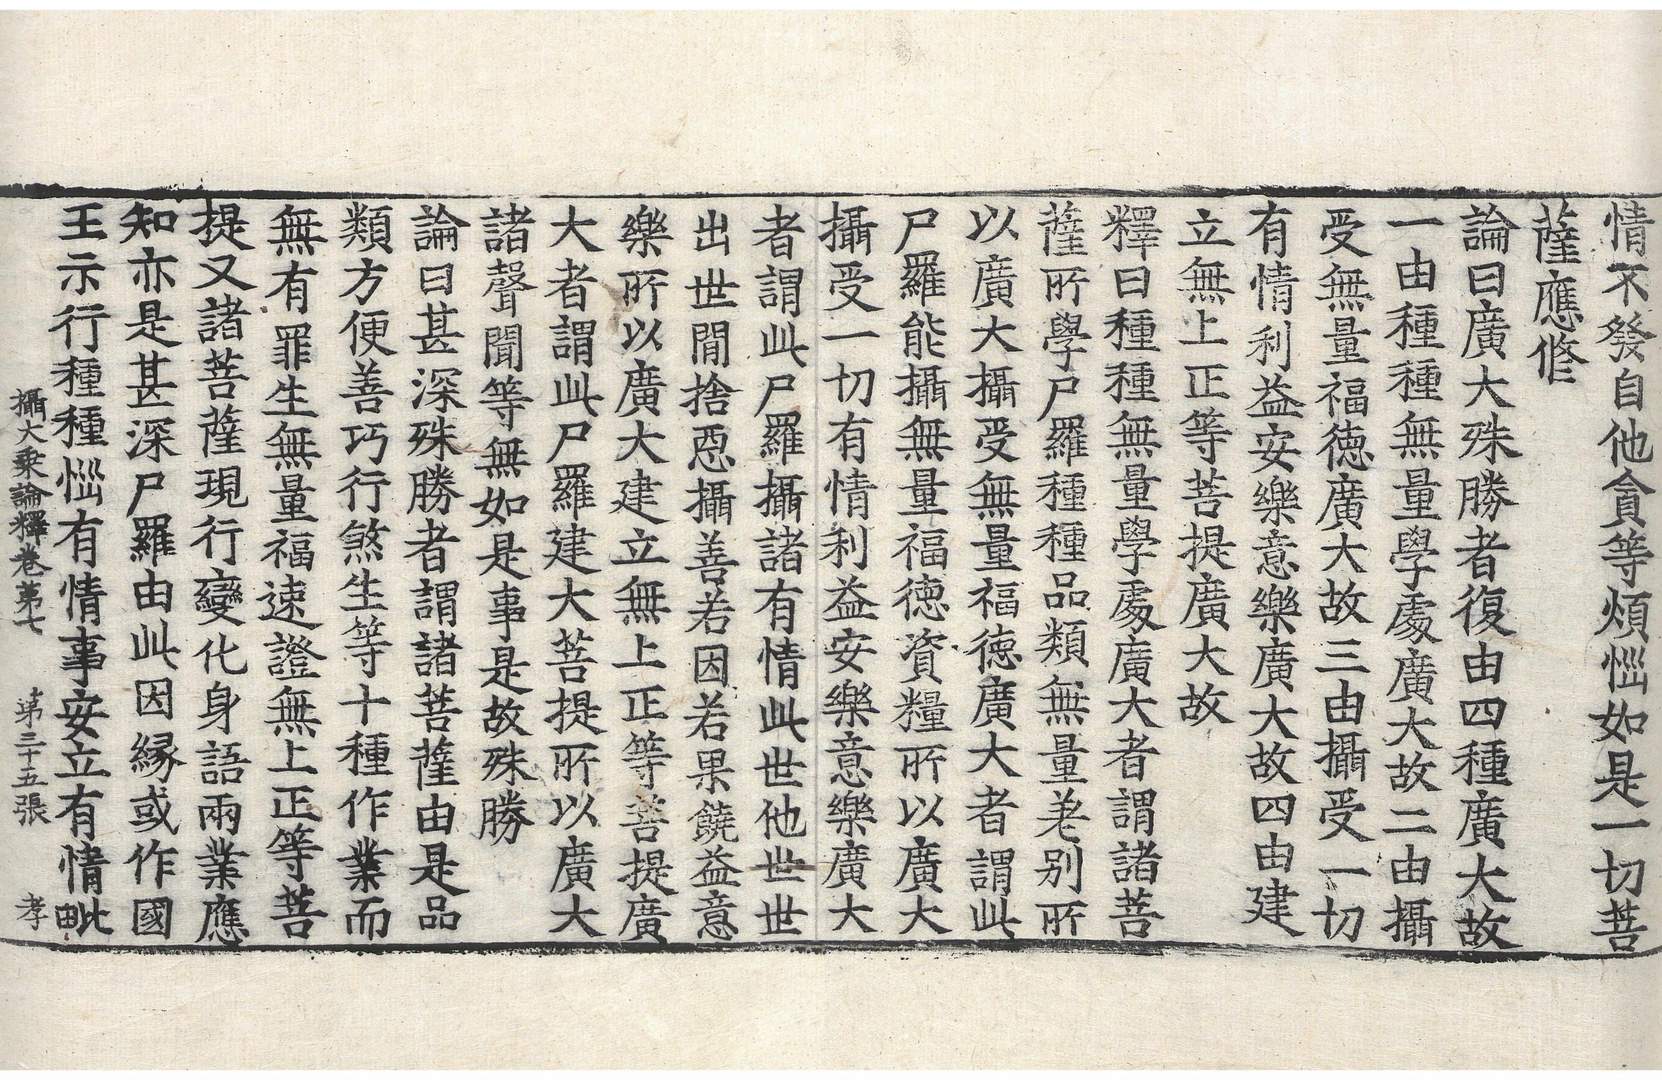 情不發自他貪等煩惱如是一切菩
薩應修
論曰廣大殊勝者復由四種廣大故
一由種種無量學處廣大故二由攝
受無量福德廣大故三由攝受一切
有情利益安樂意樂廣大故四由建
立無上正等菩提廣大故
釋曰種種無量學處廣大者謂諸菩
薩所學尸羅種種品類無量差別所
以廣大攝受無量福德廣大者謂此
尸羅能攝無量福德資糧所以廣大
攝受一切有情利益安樂意樂廣大
者謂此尸羅攝諸有情此世他世世
出世間捨惡攝善若因若果饒益意
樂所以廣大建立無上正等菩提廣
大者謂此尸羅建大菩提所以廣大
諸聲聞等無如是事是故殊勝
論曰甚深殊勝者謂諸菩薩由是品
類方便善巧行煞生等十種作業而
無有罪生無量福速證無上正等菩
提又諸菩薩現行變化身語兩業應
知亦是甚深尸羅由此因緣或作國
王示行種種惱有情事安立有情毗
攝大乘論釋卷第七 第三十五張 孝